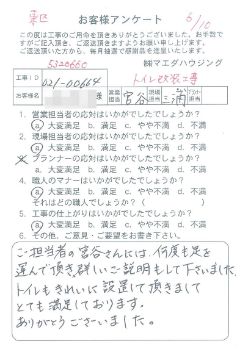 東区
お客様アンケート
5/10
この度は工事のご用命を頂きありがとうございました。お手数で
すがご記入頂き、ご返送頂きますようお願い申し上げます。
ご返送頂いた方から、毎月抽選で感謝品を送付します。
5320660
㈱マエダハウジング
工事ID
021-00664
トイレ改装工事
お客様名
様
営業担当
宮谷
現場担当
三浦
1. 営業担当者の応対はいかがでしたでしょうか?
ⓐ 大変満足 b. 満足 c. やや不満 d. 不満
2. 現場担当者の応対はいかがでしたでしょうか?
ⓐ 大変満足 b. 満足 c. やや不満 d. 不満
3. プランナーの応対はいかがでしたでしょうか?
a. 大変満足 b. 満足 c. やや不満 d. 不満
4. 職人のマナーはいかがでしたでしょうか?
ⓐ 大変満足 b. 満足 c. やや不満 d. 不満
それはどの職人でしょうか?( )
5. 工事の仕上がりはいかがでしたでしょうか?
ⓐ 大変満足 b. 満足 c. やや不満 d. 不満
6. その他、ご意見・ご要望をお書き下さい。
ご担当者の宮谷さんには、何度も足を
運んで頂き、詳しいご説明もして下さいました。
トイレもきれいに設置して頂きまして
とても満足しております。
ありがとうございました。